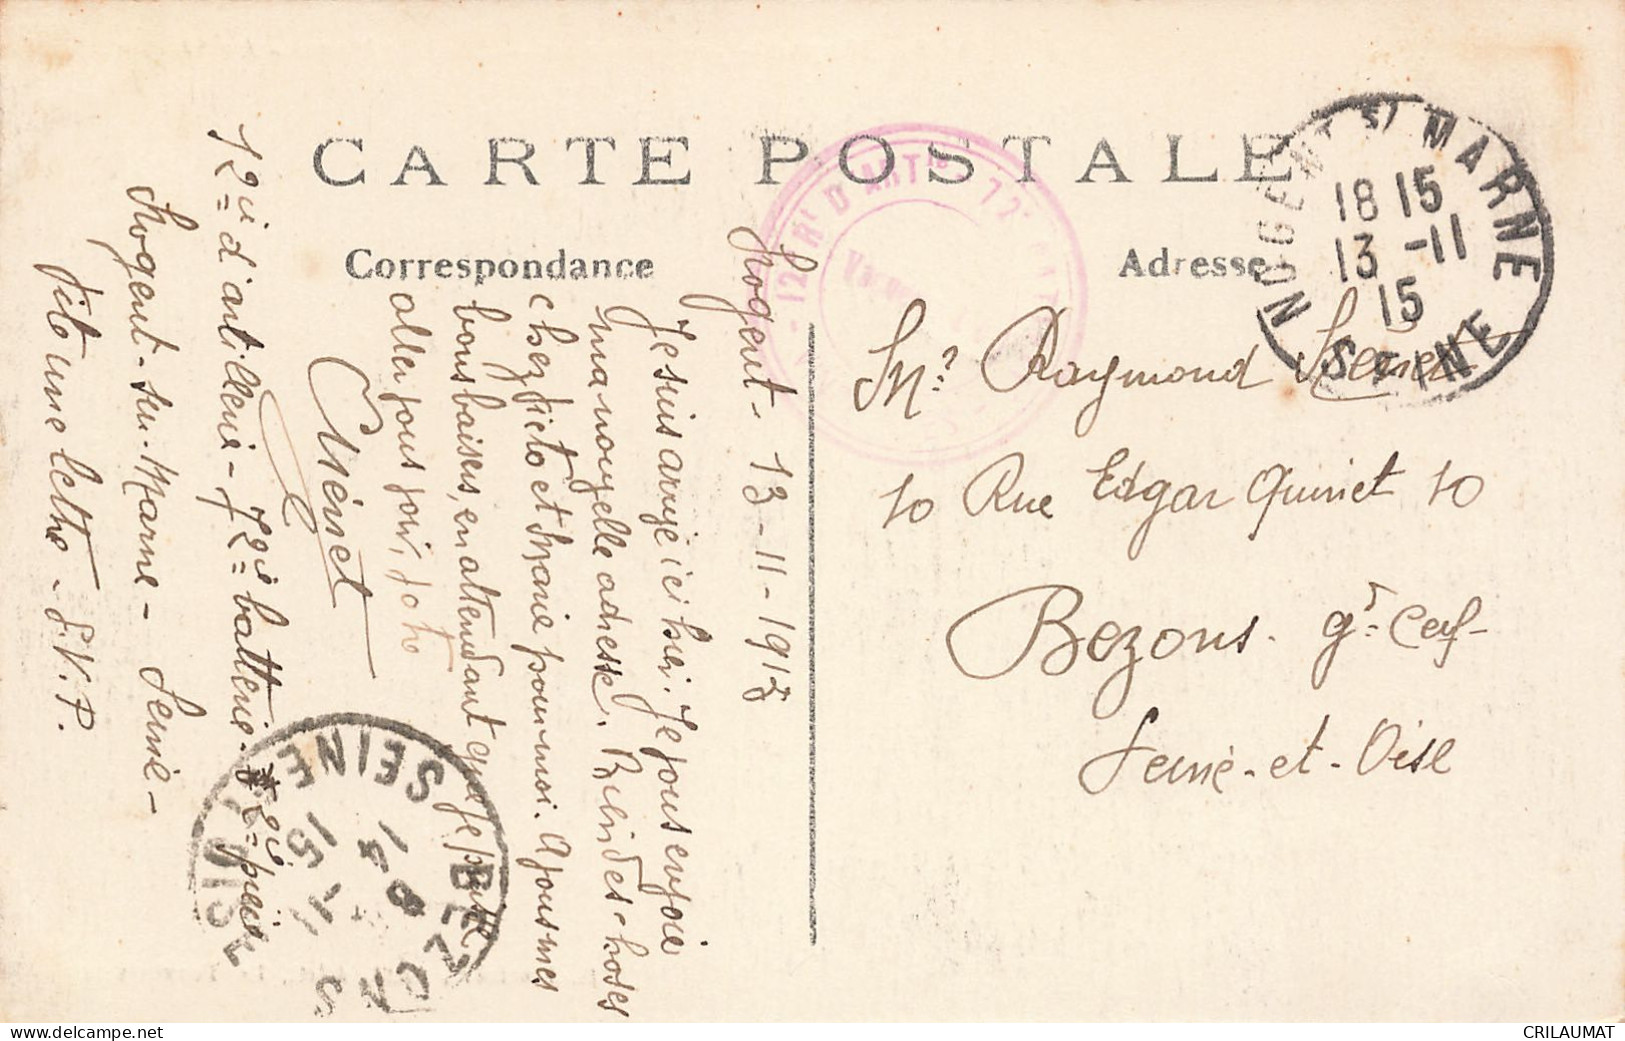 CARTE POSTALE
Correspondance
Adresse
Nogent - 13 - 11 - 1915
Je suis arrivé ici hier. Je vous envoie
ma nouvelle adresse. Bien des choses
chez Tieto et Marie pour moi. A vous mes
bons baisers, en attendant que je puisse
aller vous voir,
12e d'artillerie - 72e batterie - 2e pièce
Nogent-sur-Marne - Seine -
Vite une lettre - S.V.P.
Mr. Raymond
10 Rue Edgar Quinet 10
Bezons. gr. Cerf -
Seine-et-Oise
NOGENT S/ MARNE
18 15
13 -11
15
SEINE
BEZONS
SEINE ET OISE
8
14 -11
15
12e Rt D'ARTie 72e
delcampe.net
CRILAUMAT